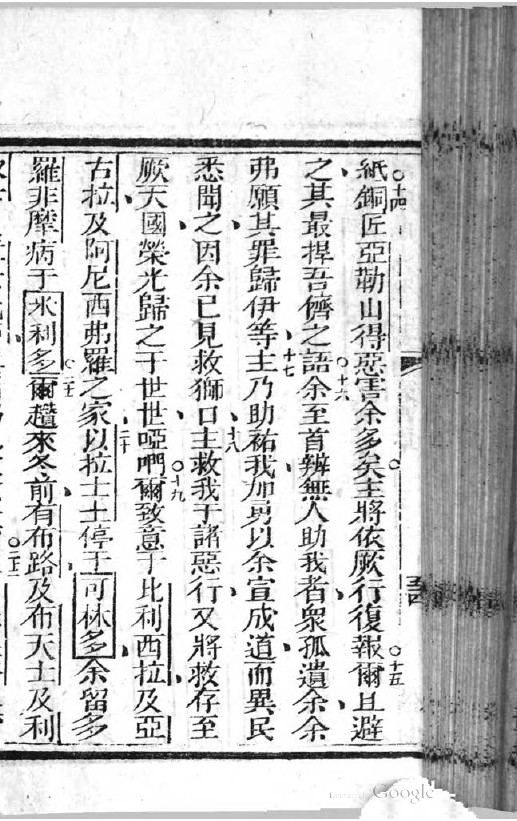 紙銅匠亞勒山得惡害余多矣主將依厥行復報爾且避
之其最捍吾儕之語余至首辯無人助我者衆孤遺余余
弗願其罪歸伊等主乃助祐我加勇以余宣成道而異民
悉聞之因余已見救獅口主救我于諸惡行又將救存至
厥天國榮光歸之于世世啞門爾致意于比利西拉及亞
古拉及阿尼西弗羅之家以拉士土停于可林多余留多
羅非摩病于米利多爾趲來冬前有布路及布天士及利
十四
十五
十六
十七
十八
十九
二十
Google